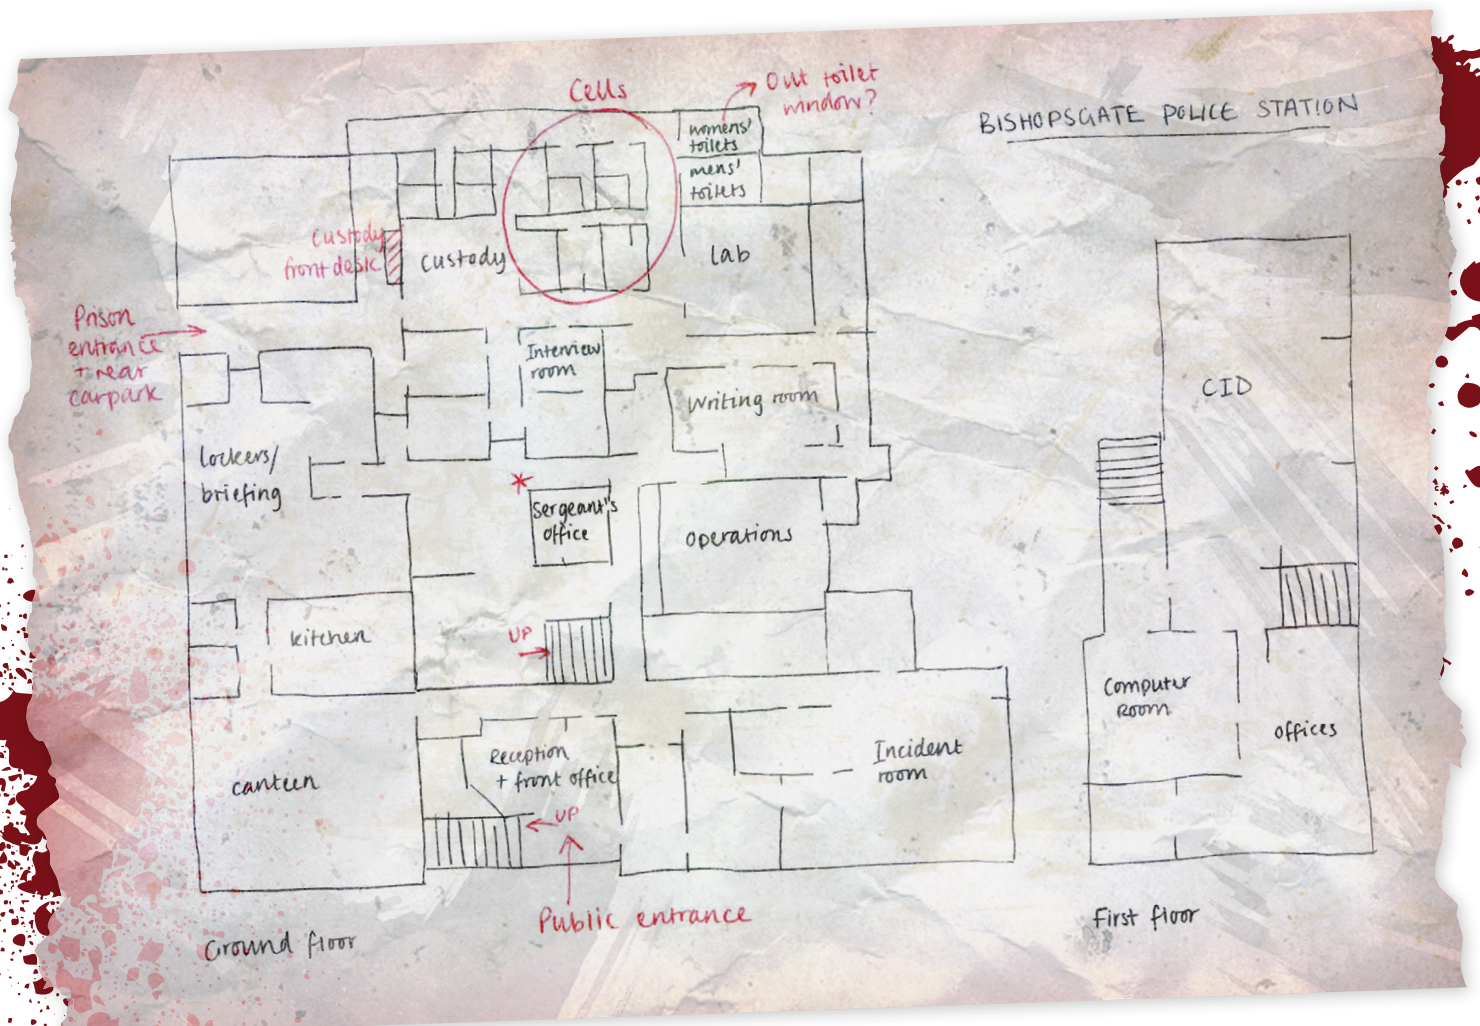 Cells
Out toilet
window?
BISHOPSGATE POLICE STATION
womens'
toilets
mens'
toilets
Custody
front desk
custody
Lab
Prison
entrance
+ rear
carpark
Interview
room
Writing room
CID
lockers/
briefing
*
Sergeant's
office
operations
kitchen
UP
Computer
Room
offices
Reception
+ front office
Incident
room
canteen
UP
Public entrance
Ground floor
First floor